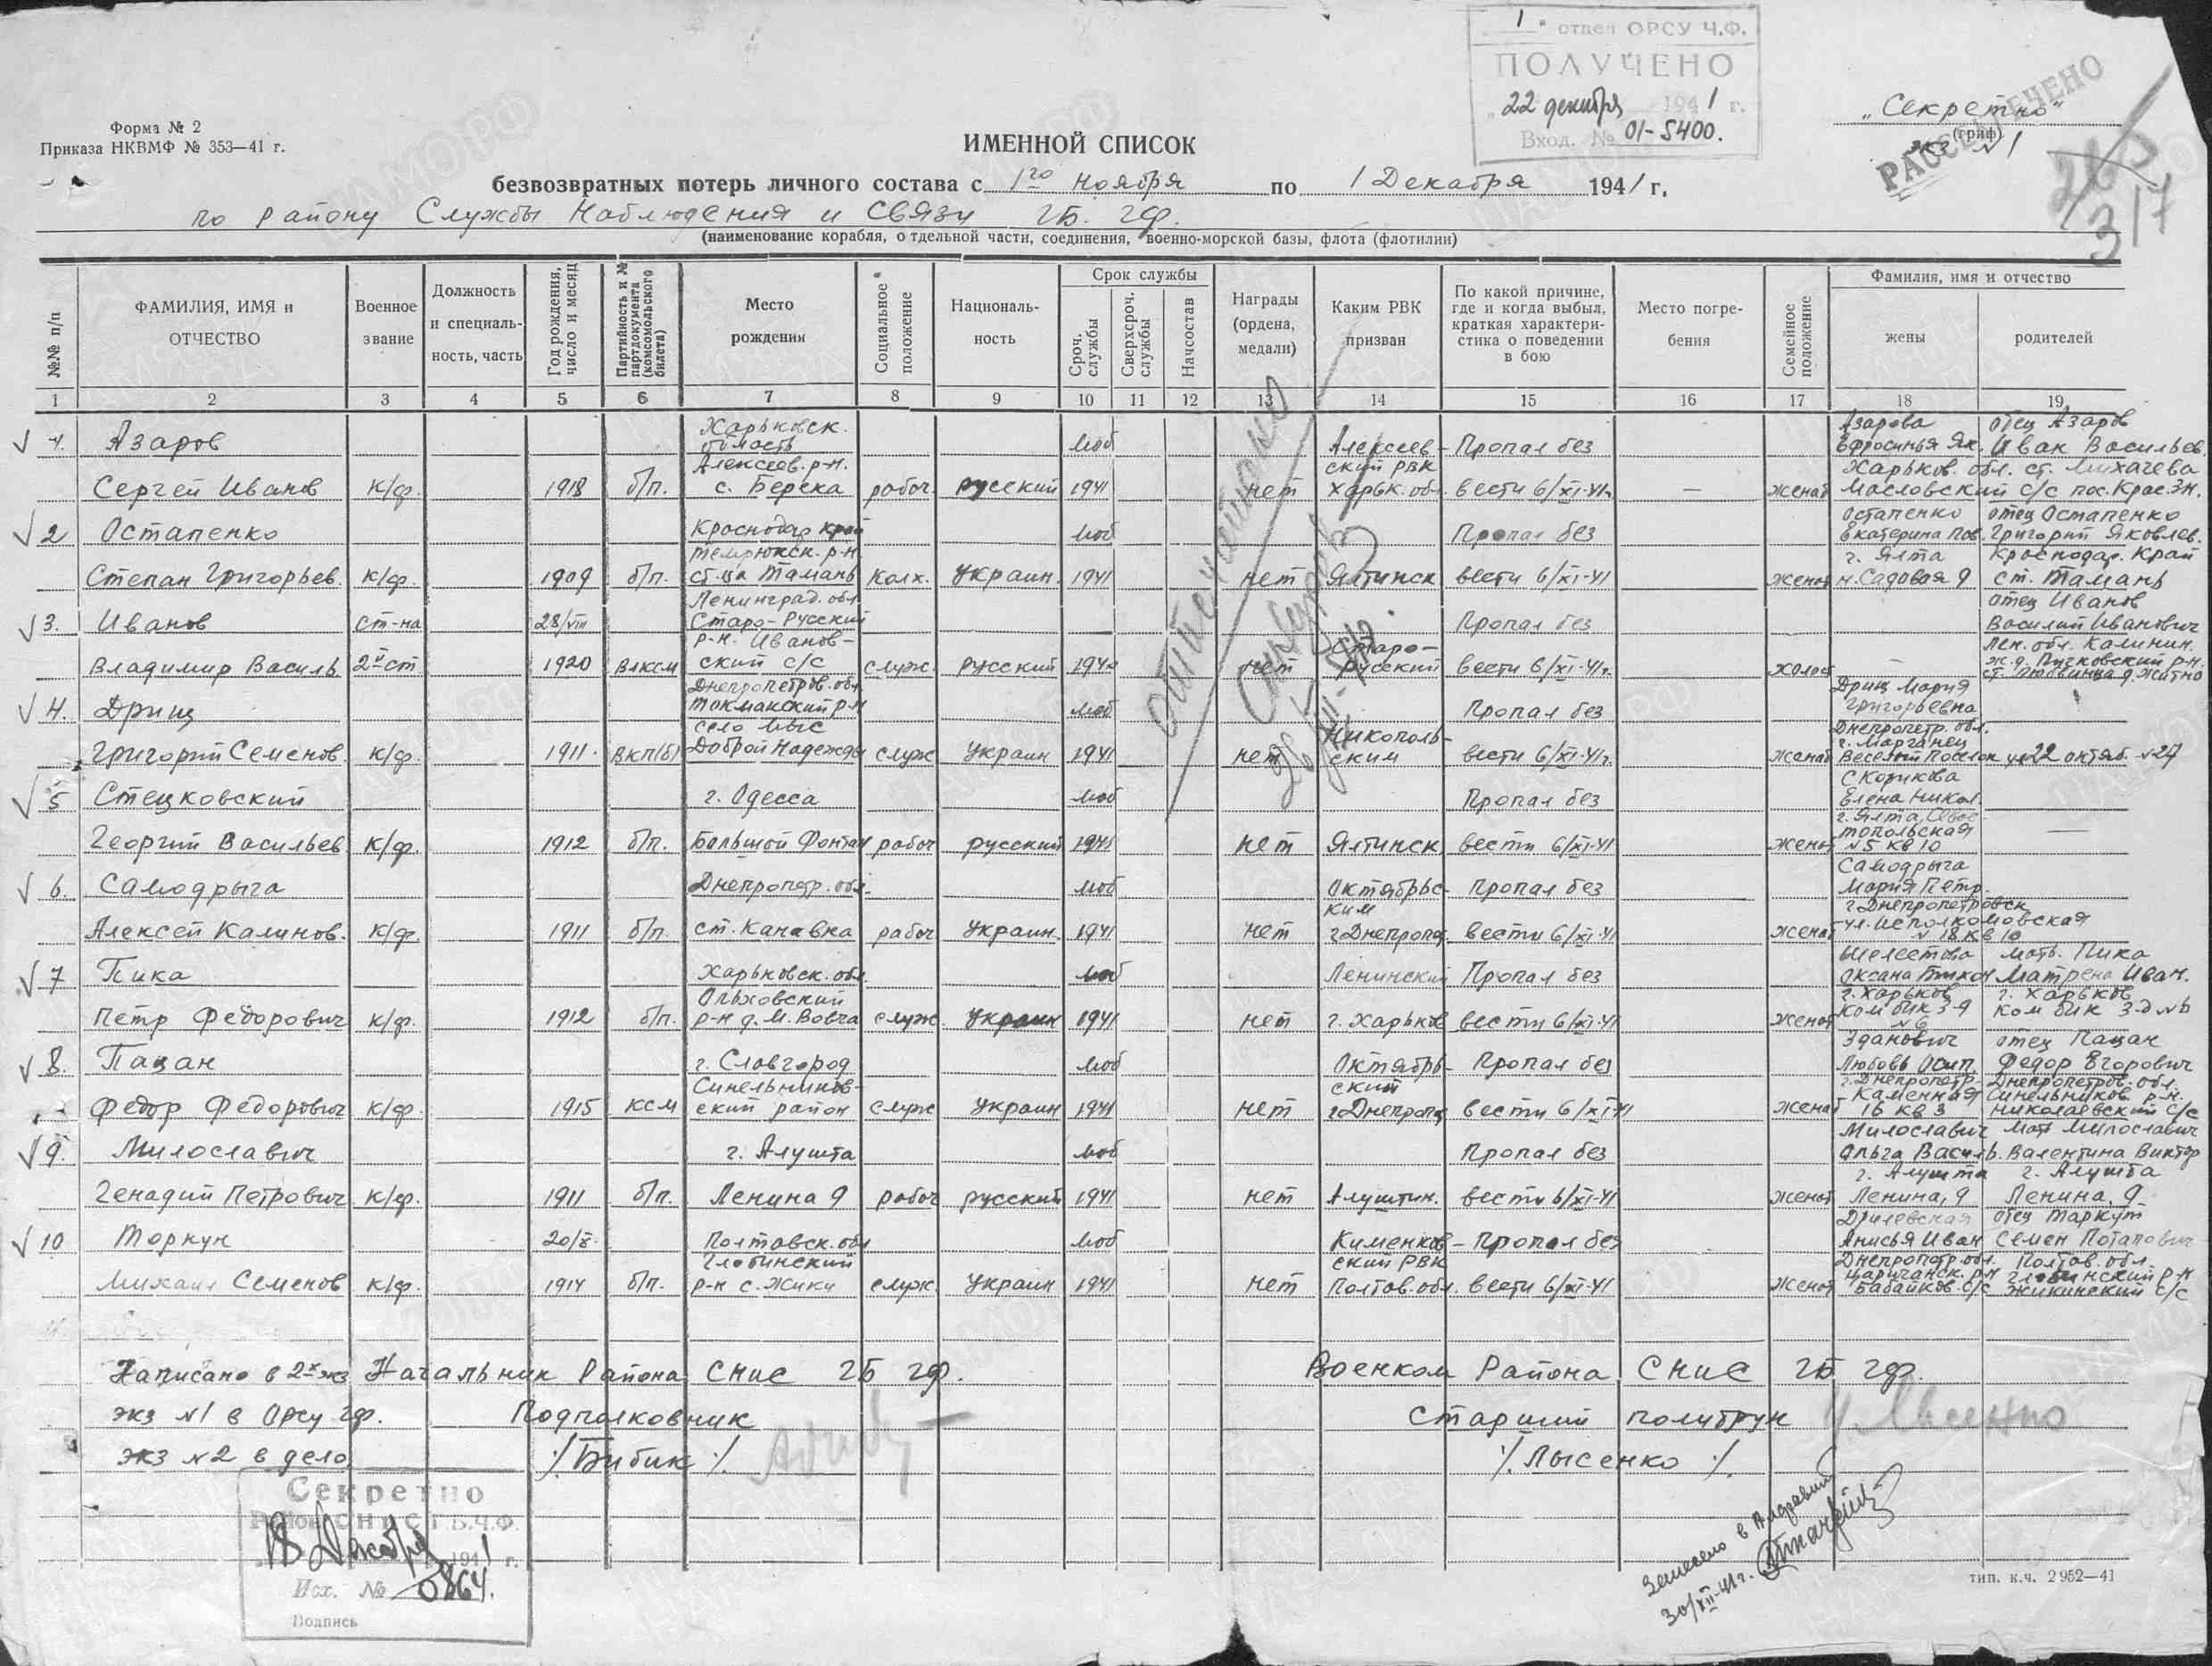 1 " отдел ОРСУ Ч.Ф.
ПОЛУЧЕНО
" 22 декабря 1941 г.
Вход. № 01-5400.
Форма № 2
Приказа НКВМФ № 353—41 г.
„Секретно"
(гриф)
экз №1
РАССЕКРЕЧЕНО
317
ИМЕННОЙ СПИСОК
безвозвратных потерь личного состава с 1го Ноября по 1 Декабря 1941 г.
по району Службы Наблюдения и Связи ГБ. чф.
(наименование корабля, отдельной части, соединения, военно-морской базы, флота (флотилии)
№№ п/п
ФАМИЛИЯ, ИМЯ и ОТЧЕСТВО
Военное звание
Должность и специальность, часть
Год рождения, число и месяц
Партийность и № партдокумента (комсомольского билета)
Место рождения
Социальное положение
Националь-ность
Срок службы
Сроч. службы
Сверхсроч. службы
Начсостав
Награды (ордена, медали)
Каким РВК призван
По какой причине, где и когда выбыл, краткая характери-стика о поведении в бою
Место погре-бения
Семейное положение
Фамилия, имя и отчество
жены
родителей
1 2 3 4 5 6 7 8 9 10 11 12 13 14 15 16 17 18 19
1. Азаров Харьковск. область моб Алексеев- Пропал без Азарова Ефросинья Як. отец Азаров Иван Васильев.
Сергей Иванов к/ф. 1918 б/п. Алексеев. р-н. с. Берека рабоч. русский 1941 нет ский РВК Харьк. обл. вести 6/XI-41г. — женат Харьков. обл. ст. Лихачева Масловский с/с пос. Крас. Зн.
2 Остапенко Краснодар край моб Пропал без Остапенко Екатерина Пав. отец Остапенко Григорий Яковлев.
Степан Григорьев. к/ф. 1909 б/п. Темрюкск. р-н. ст-ца Тамань Колх. Украин. 1941 нет Ялтинск вести 6/XI-41 женат г. Ялта н. Садовая 9 Краснодар. Край ст. Тамань
3. Иванов ст-на 28/VIII Ленинград. обл. Старо-Русский Пропал без отец Иванов Василий Иванович
Владимир Василь 2й ст. 1920 ВЛКСМ р-н. Иванов-ский с/с служ. русский 1940 нет Старо-русский вести 6/XI-41г. холост — Лен. обл. Калинин. ж.д.
4. Дрищ Днепропетров. обл. Токмакский р-н моб Пропал без Дрищ Мария Григорьевна
Григорий Семенов. к/ф. 1911. ВКП(б) село Мыс Доброй Надежды служ Украин 1941 нет Никополь-ским вести 6/XI-41г. женат Днепропетр. обл. г. Марганец Веселый Поселок ул 22 октяб. №27
5 Стецковский г. Одесса моб Пропал без Скорикова Елена Никол.
Георгий Васильев. к/ф. 1912 б/п. Большой Фонтан рабоч русский 1941 нет Ялтинск. вести 6/XI-41 женат г. Ялта, Севас-топольская №5 кв 10 —
6. Самодрыга Днепропетр. обл. моб Октябрьс- Пропал без Самодрыга Мария Петр.
Алексей Калинов. к/ф. 1911 б/п. ст. Канавка рабоч Украин. 1941 нет ким г Днепропет. вести 6/XI-41 женат г. Днепропетровск ул. Исполкомовская № 18 кв 10
7 Пика Харьковск. обл. моб Ленинский Пропал без Шелестова Оксана Тихон мать Пика Матрена Иван.
Петр Федорович к/ф. 1912 б/п. Ольховский р-н д. М. Вовча служ. Украин 1941 нет г. Харьков вести 6/XI-41 женат г. Харьков Комбик 3-д №6 г. Харьков Комбик 3-д №6
8. Пацан г. Славгород моб Октябрь- Пропал без Зданович Любовь Осип. отец Пацан Федор Егорович
Федор Федорович к/ф. 1915 ксм Синельников-ский район служ Украин 1941 нет ский г Днепропет. вести 6/XI-41 женат г. Днепропетр- Каменная 16 кв 3 Днепропетров. обл. Синельников р-н. Николаевский с/с
9. Милославич г. Алушта моб Пропал без Милославич Ольга Василь. мать Милославич Валентина Виктор
Генадий Петрович к/ф. 1911 б/п. Ленина 9 рабоч русский 1941 нет Алуштин. вести 6/XI-41 женат г. Алушта Ленина, 9 г. Алушта Ленина, 9.
10 Торкун 20/X- Полтавск. обл моб Кименков- Пропал без Дрилевская Анисья Иван отец Таркут Семен Потапович
Михаил Семенов к/ф. 1914 б/п. Глобинский р-н с. Жики служ. Украин 1941 нет ский РВК Полтав. обл. вести 6/XI-41 женат Днепропетр. обл. Царичанск. р-н Бабайков. с/с Полтав. обл. Глобинский р-н Жикинский с/с
Отпечатано
26/XII-41г
Написано в 2х экз Начальник Района СНиС ГБ чф. Военком Района СНиС ГБ чф.
экз №1 в Орсу чф. Подполковник Старший политрук
экз №2 в дело /Бибик/. /Лысенко/.
Секретно
Район СНиС Г.Б.Ч.Ф.
18 Декабря 1941 г.
Исх. № 0864.
Подпись
Занесено в Алфавит
30/XII-41г.
тип. к.ч. 2952—41